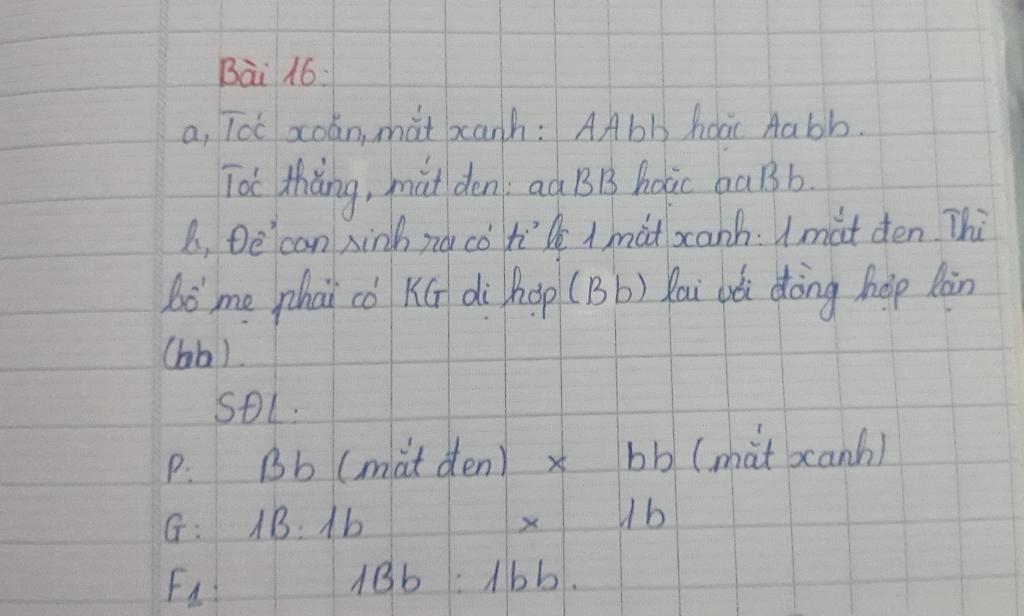 Bài 16:
a, Tóc xoăn, mắt xanh: AAbb hoặc Aabb.
Tóc thẳng, mắt đen: aaBB hoặc aaBb.
b, Để con sinh ra có tỉ lệ 1 mắt xanh: 1 mắt đen. Thì
bố mẹ phải có KG dị hợp (Bb) lai với đồng hợp lặn
(bb).
SĐL:
P: Bb (mắt đen) x bb (mắt xanh)
G: 1B: 1b x 1b
F1: 1Bb : 1bb.